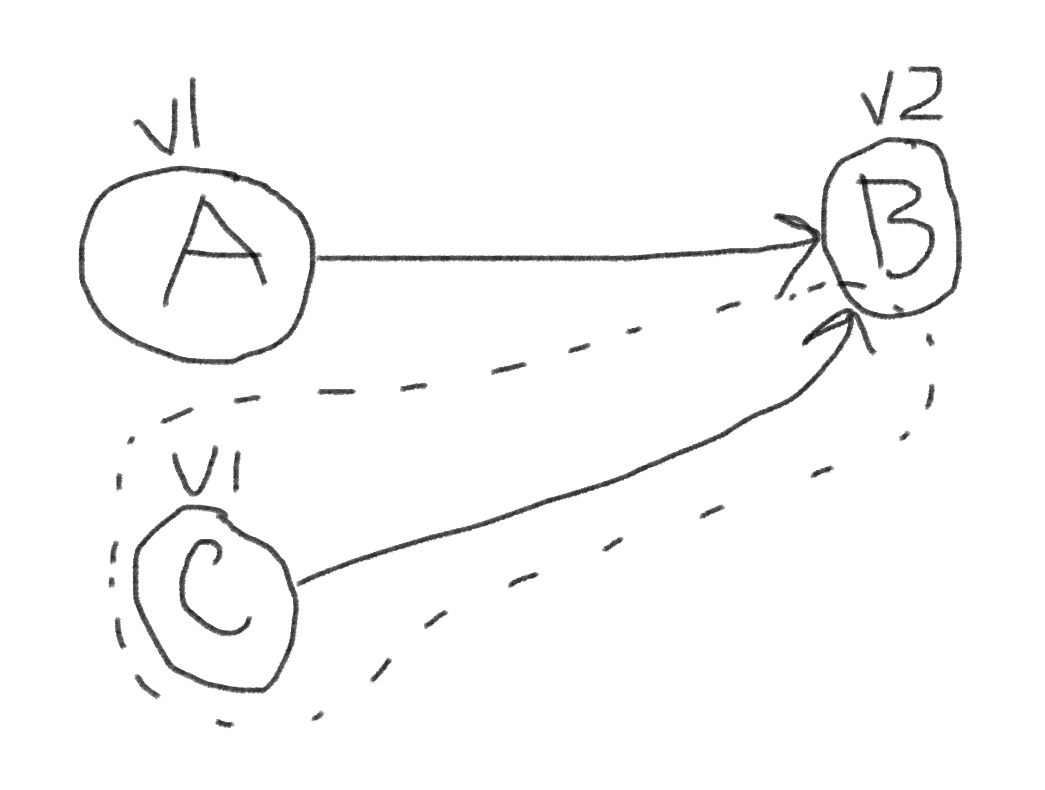 v1
A
v2
B
v1
C